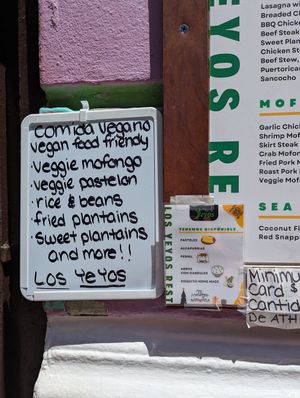 Comida Vegano
Vegan food friendly
• Veggie mofongo
• Veggie pastelon
• rice & beans
• fried plantains
• Sweet plantains
and more!!
Los YeYos
YEYOS RE
Lasagna
Breaded
BBQ Chicken
Beef Steak
Sweet Plan
Chicken St
Beef Stew,
Puertorican
Sancocho
MOF
Garlic Chic
Shrimp Mof
Skirt Steak
Crab Mofon
Fried Pork M
Roast Pork
Veggie Mof
SEA
Coconut F
Red Snapp
LOS YEYOS REST
Yeyos
TENEMOS DISPONIBLE
PASTELES
ALCAPURRIAS
PERNIL
ARROZ
CON GANDULES
MOSQUITO HOME MADE
Minimu
Card $
Cantid
De ATH